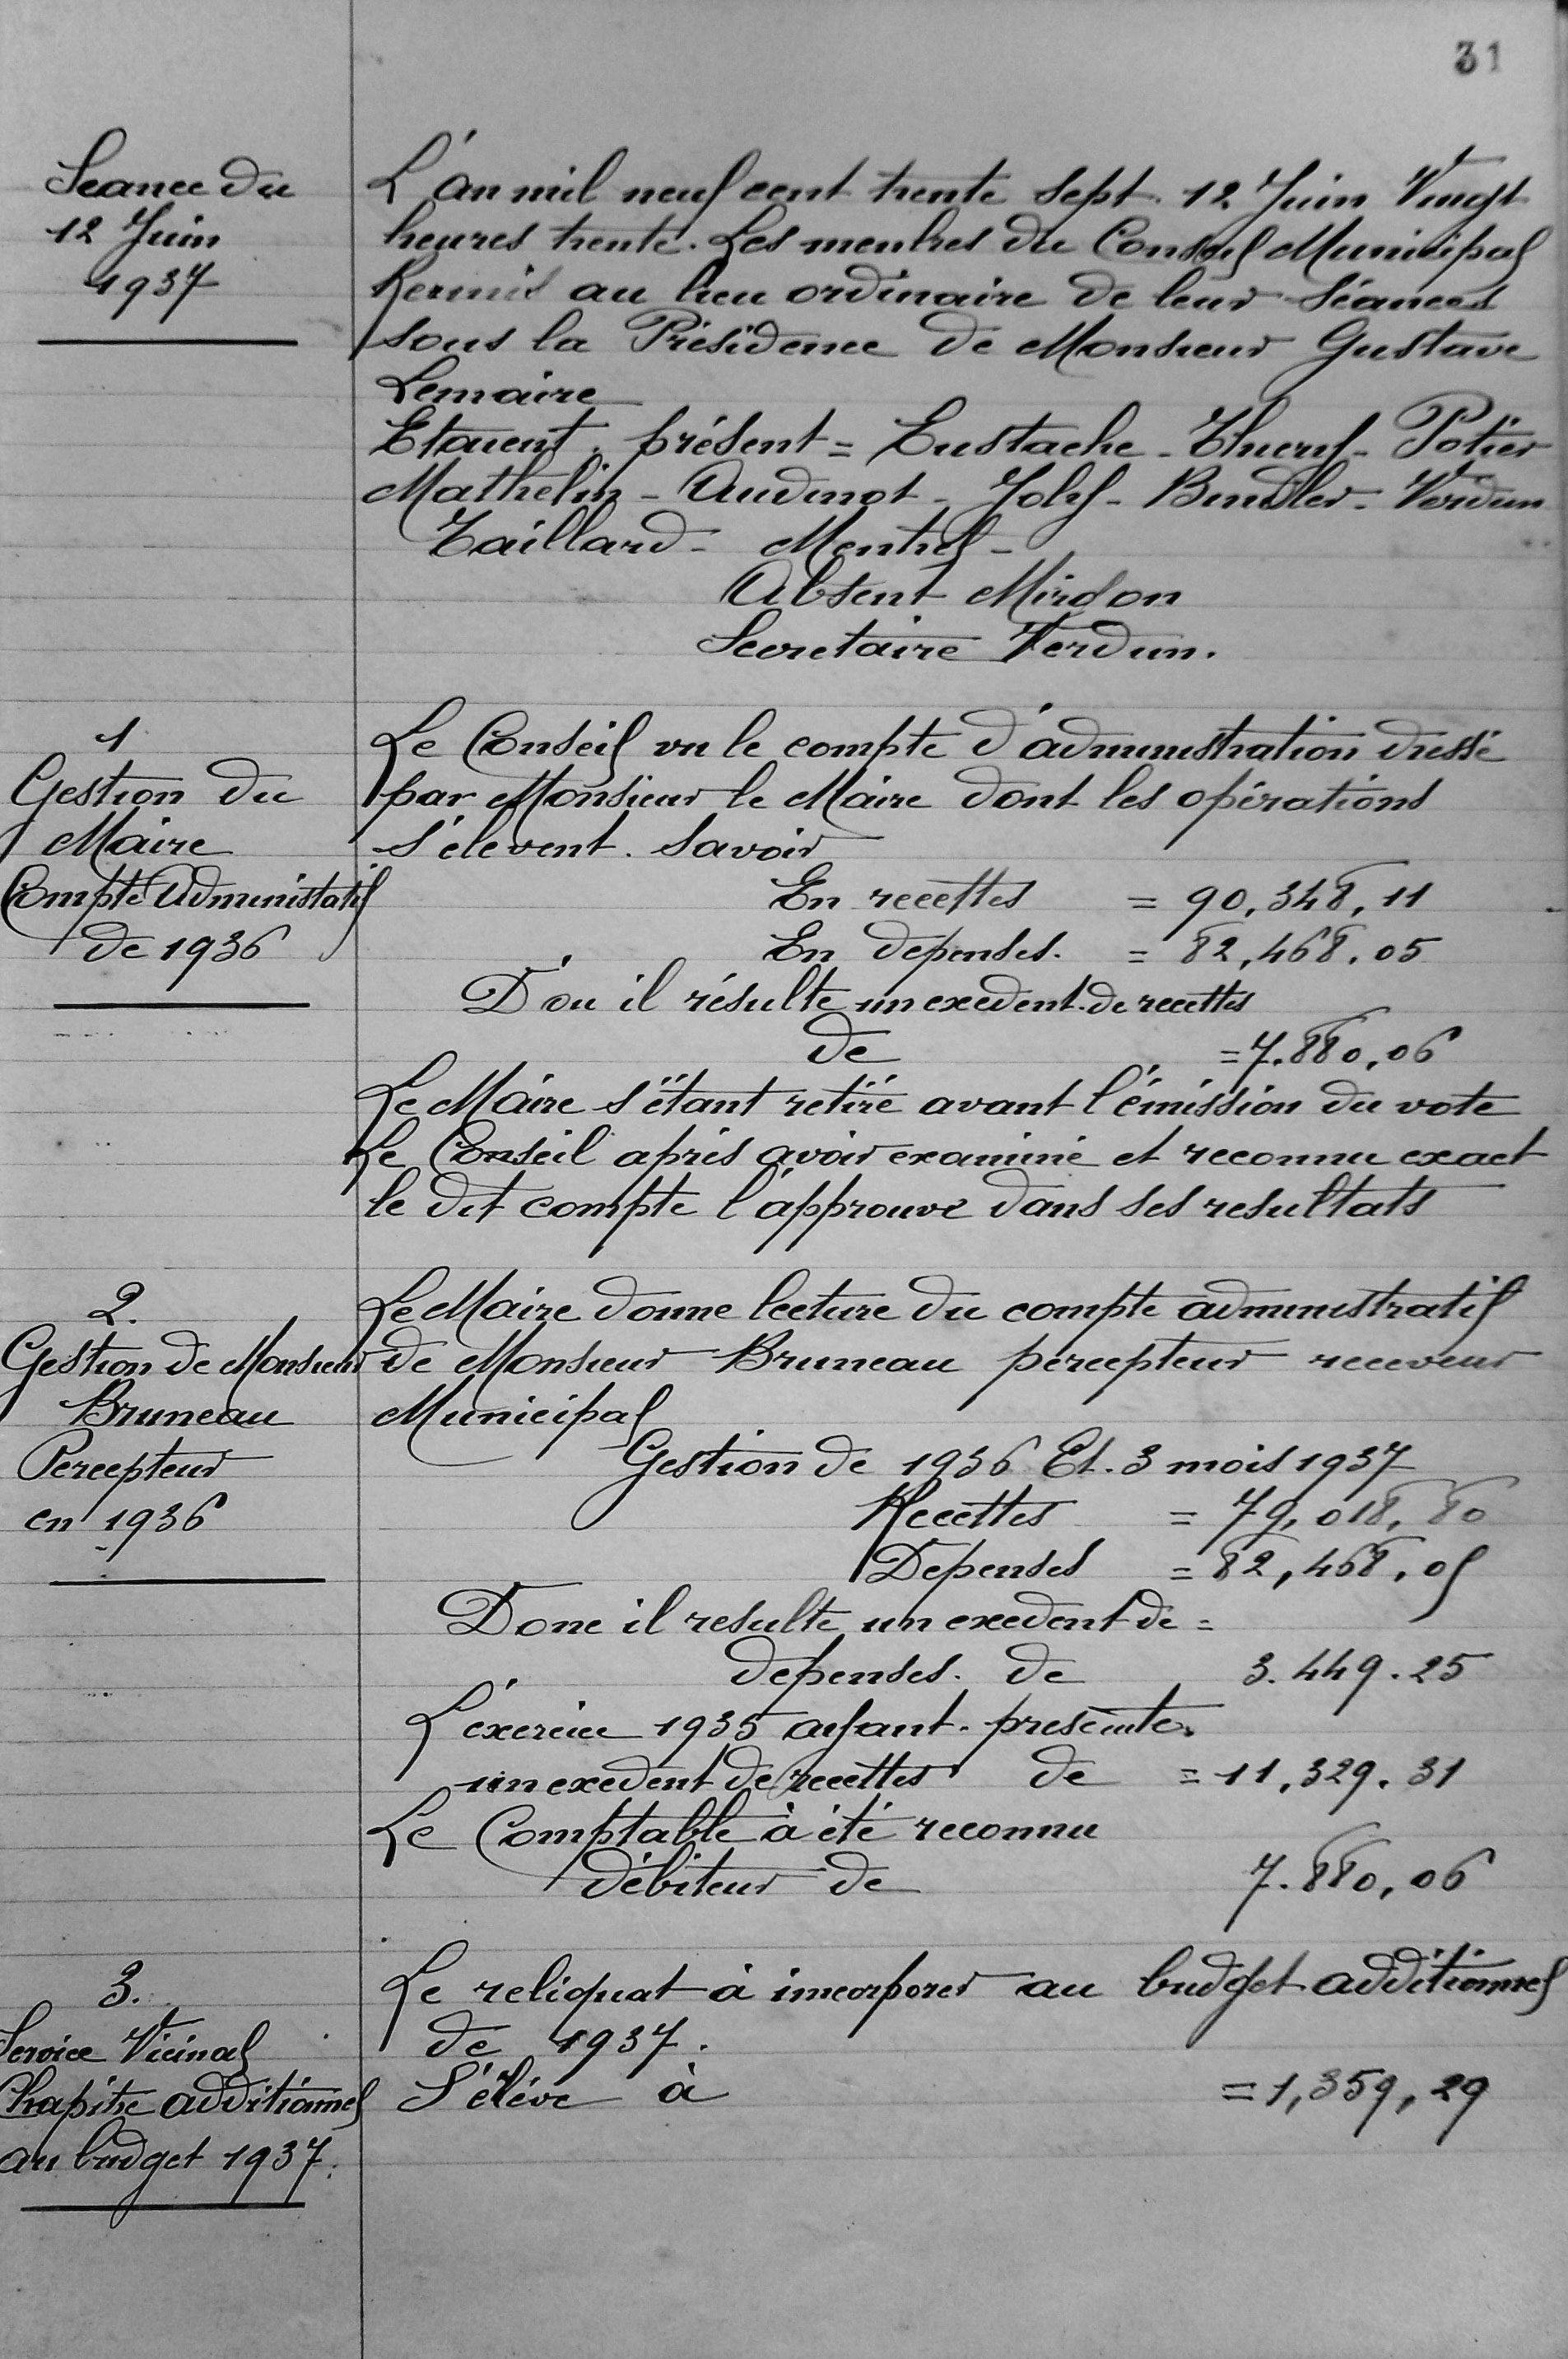 31
Seance du
12 Juin
1937
L'an mil neuf cent trente sept. 12 Juin Vingt
heures trente. Les membres du Conseil Municipal
Reunis au lieu ordinaire de leur Séances
sous la Présidence de Monsieur Gustave
Lemaire
Etaient. présent = Eustache - - Potier
Mathelin - Audinot - Joly - - Verdun
Taillard - Mentrel -
Absent Mirdon
Secretaire Verdun.
1
Gestion du
Maire
Compte Administatif
de 1936
Le Conseil vu le compte d'administration dressé
par Monsieur le Maire dont les opérations
s'élevent. Savoir
En recettes = 90,348,11
En depenses. = 82,468.05
D'ou il résulte un exedent. de recettes
de = 7.880,06
Le Maire s'étant retiré avant l'émission du vote
Le Conseil aprés avoir examiné et reconnu exact
le dit compte l'approuve dans ses resultats
2.
Gestion de Monsieur
Bruneau
Percepteur
en 1936
Le Maire donne lecture du compte administratif
de Monsieur Bruneau percepteur receveur
Municipal
Gestion de 1936 Et. 3 mois 1937
Recettes = 79,018,80
Depenses = 82,468,05
Donc il resulte un exedent de =
depenses. de 3.449.25
L'éxercice 1935 ayant. presénte
un exedent de recettes de = 11,329.31
Le Comptable à été reconnu
débiteur de 7.880,06
3.
Service Vicinal
Chapitre additionnel
au budget 1937.
Le reliquat à incorporer au budget additionnel
de 1937.
S'éléve à = 1,359,29